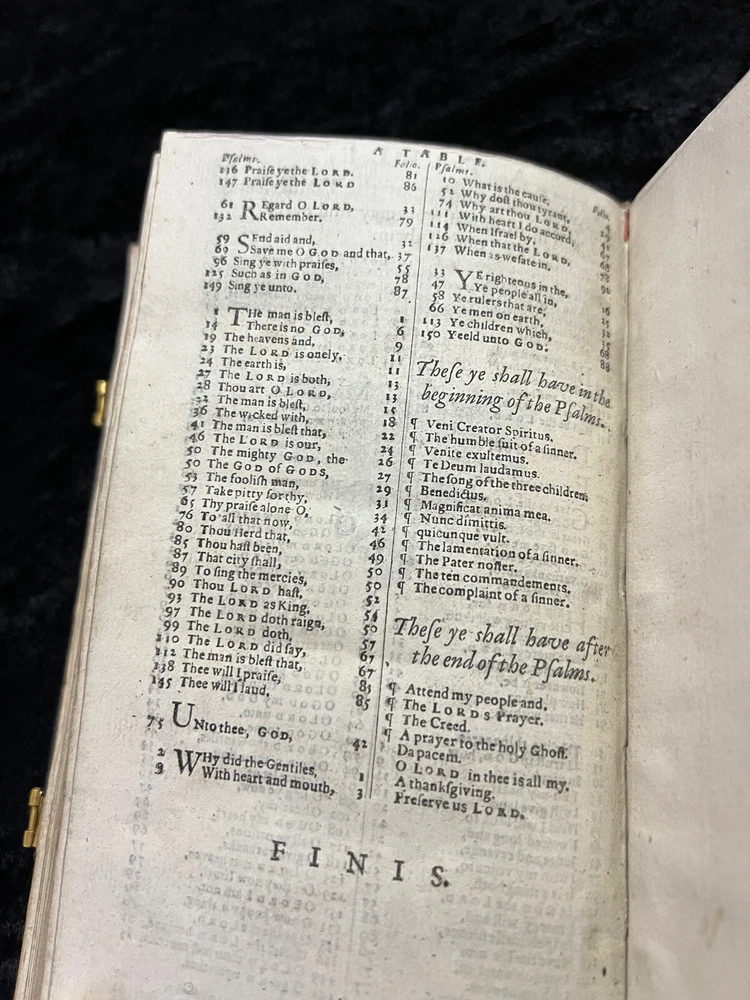 A TABLE.
Pſalms. Folio.
136 Praiſe ye the LORD. 81
147 Praiſe ye the LORD 86
61 REgard O LORD, 33
132 Remember. 79
59 SEnd aid and, 32
69 Save me O GOD and that, 37
96 Sing ye with praiſes, 55
125 Such as in GOD, 78
149 Sing ye unto. 87
1 THe man is bleſt, 1
14 There is no GOD, 6
19 The heavens and, 9
23 The LORD is onely, 11
24 The earth is, 11
27 The LORD is both, 13
28 Thou art O LORD, 13
32 The man is bleſt, 15
36 The wicked with, 18
41 The man is bleſt that, 22
46 The LORD is our, 24
50 The mighty GOD, the 26
50 The GOD of GODS, 27
53 The fooliſh man, 29
57 Take pitty for thy, 31
65 Thy praiſe alone O, 34
76 To all that now, 42
80 Thou Herd that, 46
85 Thou haſt been, 49
87 That city ſhall, 50
89 To ſing the mercies, 50
90 Thou LORD haſt, 52
93 The LORD as King, 54
97 The LORD doth raign, 50
99 The LORD doth, 57
110 The LORD did ſay, 67
112 The man is bleſt that, 67
138 Thee will I praiſe, 83
145 Thee will I laud. 85
75 UNto thee, GOD, 42
2 WHy did the Gentiles, 1
9 With heart and mouth, 3
Pſalms. Folio.
10 What is the cauſe, 4
52 Why doſt thou tyrant,
74 Why art thou LORD,
111 With heart I do accord, 67
114 When Iſrael by, 68
126 When that the LORD, 78
137 When as we ſate in.
33 YE righteous in the, 16
47 Ye people all in, 25
58 Ye rulers that are, 32
66 Ye men on earth, 35
113 Ye children which, 68
150 Yeeld unto GOD. 88
Theſe ye ſhall have in the
beginning of the Pſalms.
¶ Veni Creator Spiritus.
¶ The humble ſuit of a ſinner.
¶ Venite exultemus.
¶ Te Deum laudamus.
¶ The ſong of the three children,
¶ Benedictus.
¶ Magnificat anima mea.
¶ Nunc dimittis.
¶ quicunque vult.
¶ The lamentation of a ſinner.
¶ The Pater noſter.
¶ The ten commandements.
¶ The complaint of a ſinner.
Theſe ye ſhall have after
the end of the Pſalms.
¶ Attend my people and,
¶ The LORDS Prayer.
¶ The Creed.
¶ A prayer to the holy Ghoſt.
Da pacem.
O LORD in thee is all my.
A thankſgiving.
Preſerve us LORD.
FINIS.